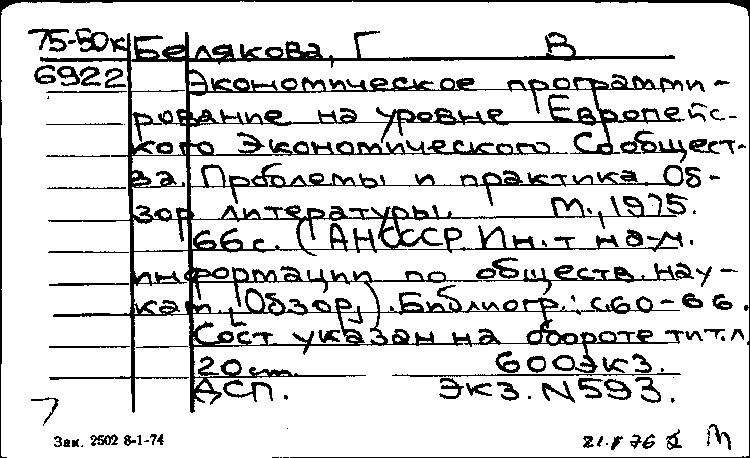 75-50к Белякова, Г В
6922 Экономическое программи-
рование на уровне Европейс-
кого Экономического Сообщест-
ва. Проблемы и практика. Об-
зор литературы. М., 1975.
66 с. (АН СССР. Ин-т науч.
информации по обществ. нау-
кам. „Обзор„). Библиогр.: с.60-66.
Сост указан на обороте тит.л
20 cm. 600 экз.
ДСП. Экз. N593.
Зак. 2502 8-1-74